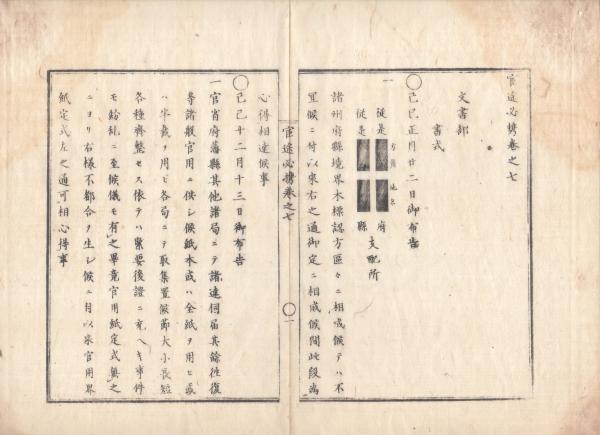 官途必携巻之七
文書部
書式
◯己巳正月廿二日御布告
一
従是 方角 地名 府
従是 縣
支配所
諸州府縣境界木標認方區々ニ相成候テハ不
宜候ニ付以来右之通御定ニ相成候間此段為
官途必携巻之七
◯一
心得相達候事
◯己巳十二月十三日御布告
一官省府藩縣其他諸局ニテ諸達伺届其餘往復
等諸般官用ニ供シ候紙本或ハ全紙ヲ用ヒ或
ハ半截ヲ用ヒ各局ニテ取集置候節大小長短
各種齊整セス依テハ緊要後證ニ充ヘキ事件
モ紛乱ニ至候儀モ有之畢竟官用紙定式無之
ニヨリ右様不都合ヲ生シ候ニ付以来官用界
紙定式左之通可相心得事